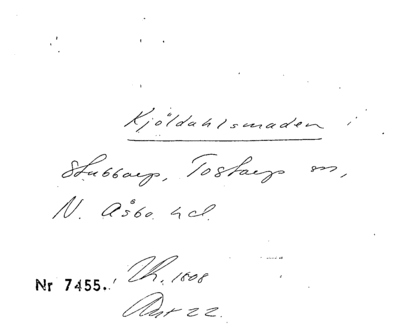 Kjöldahlsmaden i
Stubbarp, Tostarp sn,
N. Åsbo hd.
Nr 7455. Th. 1808
Ant 22.